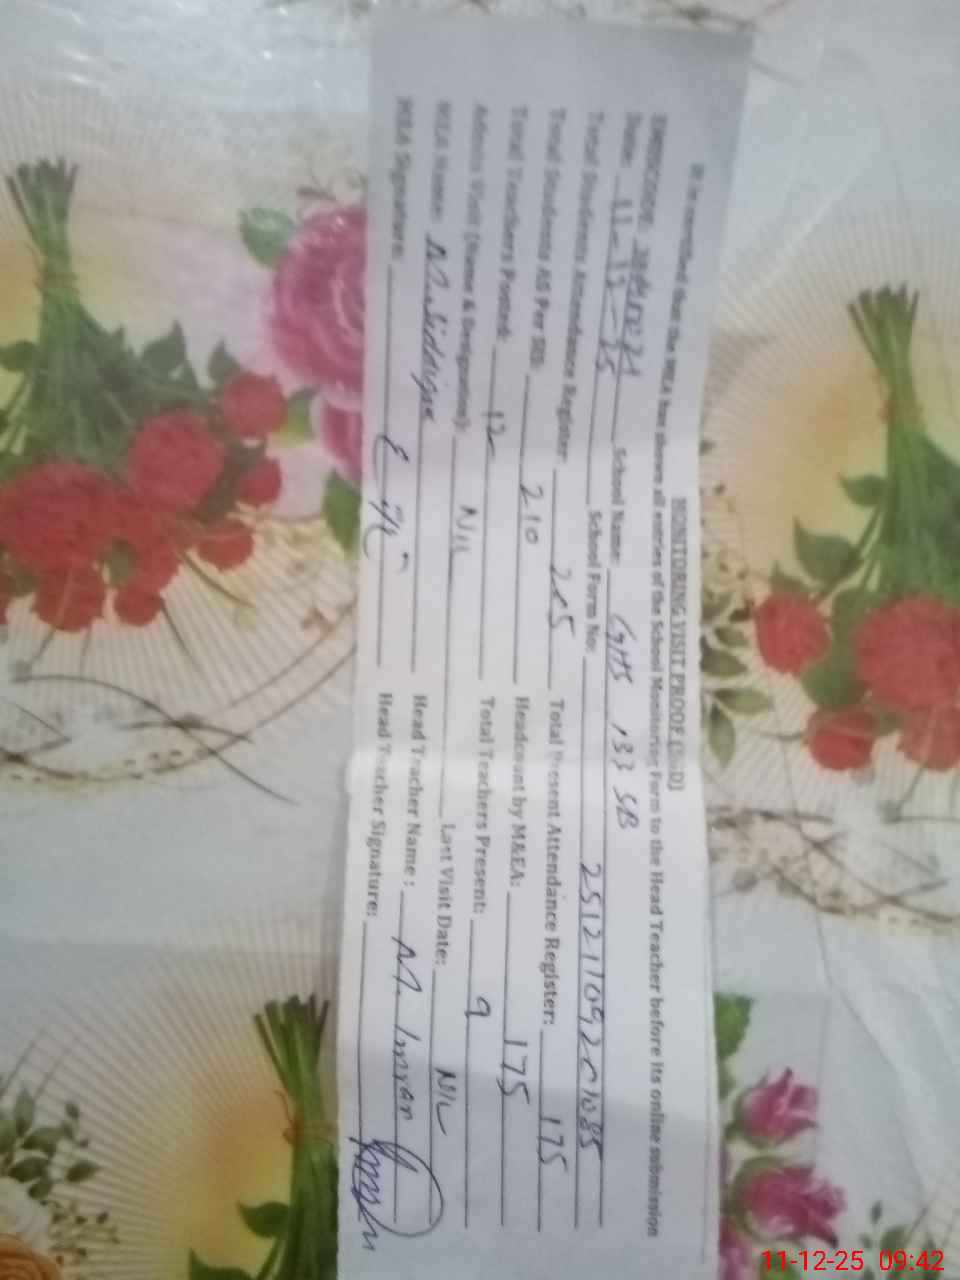 MONITORING VISIT PROOF (SED)
It is certified that the MEA has shown all entries of the School Monitoring Form to the Head Teacher before its online submission
EMISCODE: School Name: GHS 133 SB
Date: School Form No: 
Total Students Attendance Register: 205 Total Present Attendance Register: 175
Total Students AS Per SED: 210 Headcount by M&EA: 175
Total Teachers Posted: 12 Total Teachers Present: 9
Admin Visit (Name & Designation): NIL Last Visit Date: NIL
MEA Name: M. Siddique Head Teacher Name: M. Imran
MEA Signature: Head Teacher Signature:
11-12-25 09:42